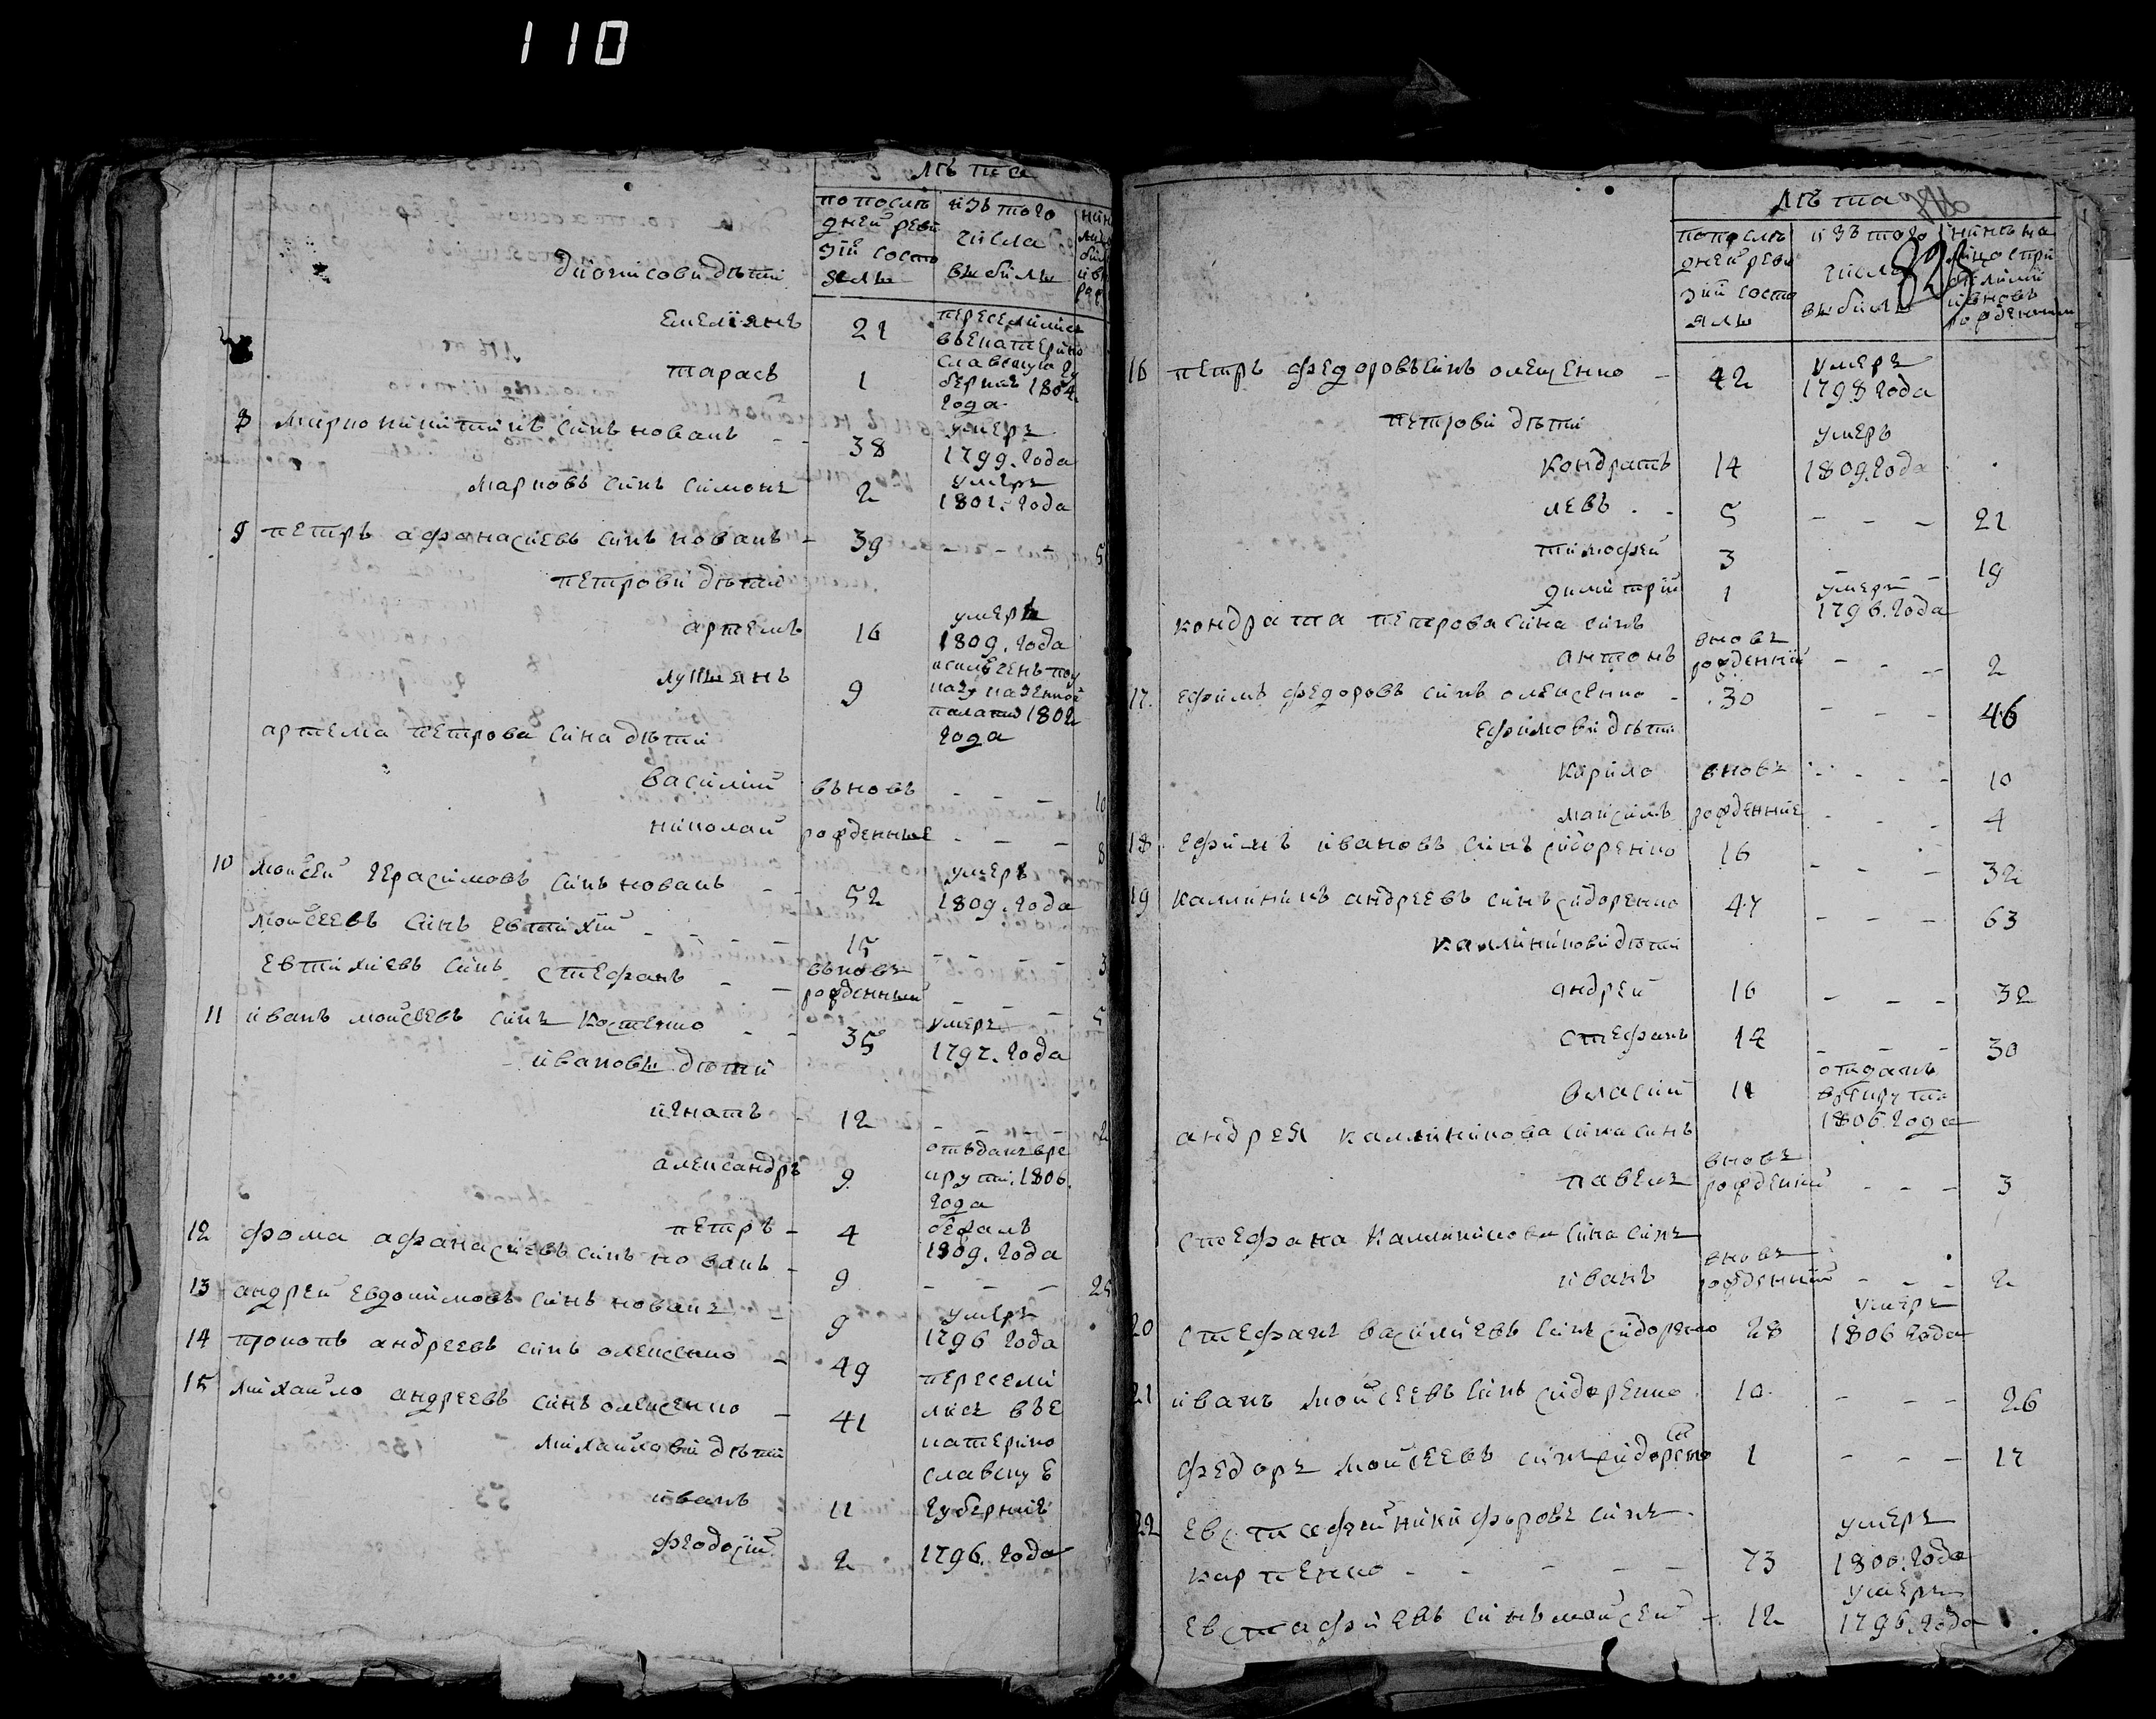 110
лѣта
попослѣ изъ того
дней реви числа
зіи состо выбыли
яли
Дионисови дѣти
Емеліянъ 21 переселились
въекатерино
славскую гу
Тарасъ 1 бернію 1804
года
8 Марко никитинъ синъ новакъ - - 38 умеръ
1799. года
Марковъ синъ Симонъ 2 умеръ
1801. года
9 петръ афанасиевъ синъ новакъ - 39 - - -
петрови дѣти
артемъ 16 умеръ
1809. года
лукіянъ 9
палати 1802
года
артема петрова сина дѣти
василий въновь - - -
николай рожденные - - - 8
10 Мойсей герасимовъ синъ новакъ - - 52 умеръ
1809. года
Мойсеевъ синъ евтихій - - - - 15 - - - -
евтихиевъ синъ стефанъ - - въновь
рожденный - - - 5
11 иванъ мойсеевъ синъ Костенко - - 35 умеръ
1797. года
ивановы дѣти
игнатъ - 12 - - - -
александръ 9. отъданъ вре
крути. 1806.
года
петръ - 4 бежалъ
1809. года
12 фома афанасиевъ синъ новакъ - 9 - - - 25
13 андрей евдокимовъ синъ новакъ - 9 умеръ
1796 года
14 прокопъ андреевъ синъ олексенко - 49 пересели
15 михайло андреевъ синъ олексенко - 41 лись въе
катерино
михайлови дѣти
славскую
иванъ 11 губернию
феодосій 2 1796. года
лѣта
попослѣ изъ того нинѣ на
дней реви числа лицо спри
зии состо выбыли
яли рожденними
16 петръ федоровъ синъ олексенко - 42 умеръ
1798 года
петрови дѣти
Кондратъ 14 умеръ
1809. года
левъ - - 5 - - - 21
тимофей 3 - - - 19
димитрій 1 умеръ
1796. года
кондрата петрова сина синъ
антонъ вновь
рожденній - - - 2
17. ефимъ федоровъ синъ олексенко - 30 - - - 46
ефимови дѣти
Кирило вновь - - - 10
максимъ рожденние - - - 4
18. ефимъ ивановъ синъ сидоренко 16 - - - 32
19 каллиникъ андреевъ синъ сидоренко 47 - - - 63
каллиникови дѣти
андрей 16 - - - 32
стефанъ 14 - - - 30
власий 11 отиданъ
врекрути
1806. года
андрея каллиникова сина синъ
павелъ вновь
рожденний - - - 3
стефана каллиникова сина синъ
иванъ вновь
рожденний - - - 2
20 стефанъ василиевъ синъ сидоренко 28 умеръ
1806 года
21 иванъ мойсеевъ синъ сидоренко 10 - - - 26
федоръ мойсеевъ синъ сидоренко 1 - - - 17
22 евстафей никифоровъ синъ
карпенко - - - - - 73 умеръ
1800. года
евстафиевъ синъ мойсей - 12 умеръ
1796. года